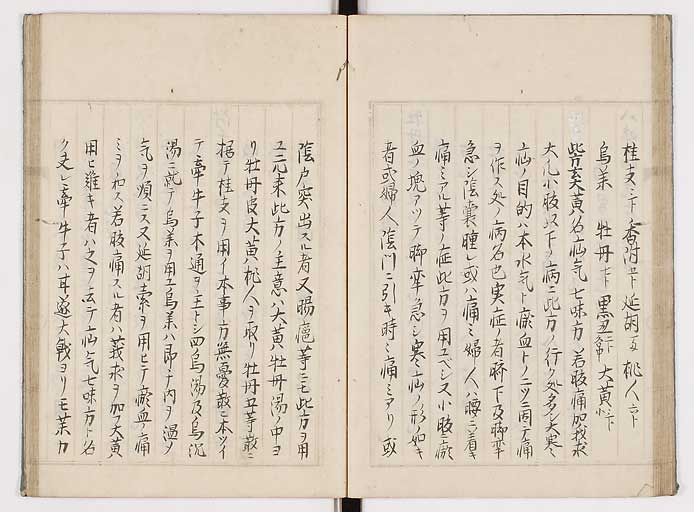 桂支 三下 香附 四下 延胡 五分 桃人 六下
烏薬 牡丹 七下 黒丑 二下 大黄 六下
此方亥黄名疝気七味方若股痛加莪朮
大凡小腹以下ノ病ニ此方ノ行ク処多シ夫寒
疝ノ目的ハ本水気ト瘀血トノ二ツニ因テ痛
ヲ作ス処ノ病名也実症ノ者臍下及脚攣
急シ陰嚢腫レ或ハ痛ミ婦人ハ腰ニ引キ
痛ミアル等ノ症此方ヲ用ユベシ又小腹ニ瘀
血ノ塊アツテ脚攣ノ急シ寒疝ノ形ノ如キ
者或婦人陰門ニ引キ時ミ痛ミアリ或
陰戸突出スル者又腸癰等ニモ此方ヲ用
ユ元来此方ノ主意ハ大黄牡丹湯ノ中ヨ
リ牡丹皮大黄桃人ヲ取リ牡丹五等散ニ
据テ桂支ヲ用イ本事方無憂散ニ本ツイ
テ牽牛子木通ヲ主トシ四烏湯及烏沉
湯ニ就テ烏薬ヲ用ユ烏薬ハ即チ内ヲ温メ
気ヲ順ニス又延胡索ヲ用ヒテ瘀血ノ痛
ミヲ和ス若腹痛スル者ハ莪朮ヲ加ヱ大黄
用ヒ難キ者ハ之ヲ去テ疝気七味方ト名
ク又シ牽牛子ハ甘遂大戟ヨリモ薬力